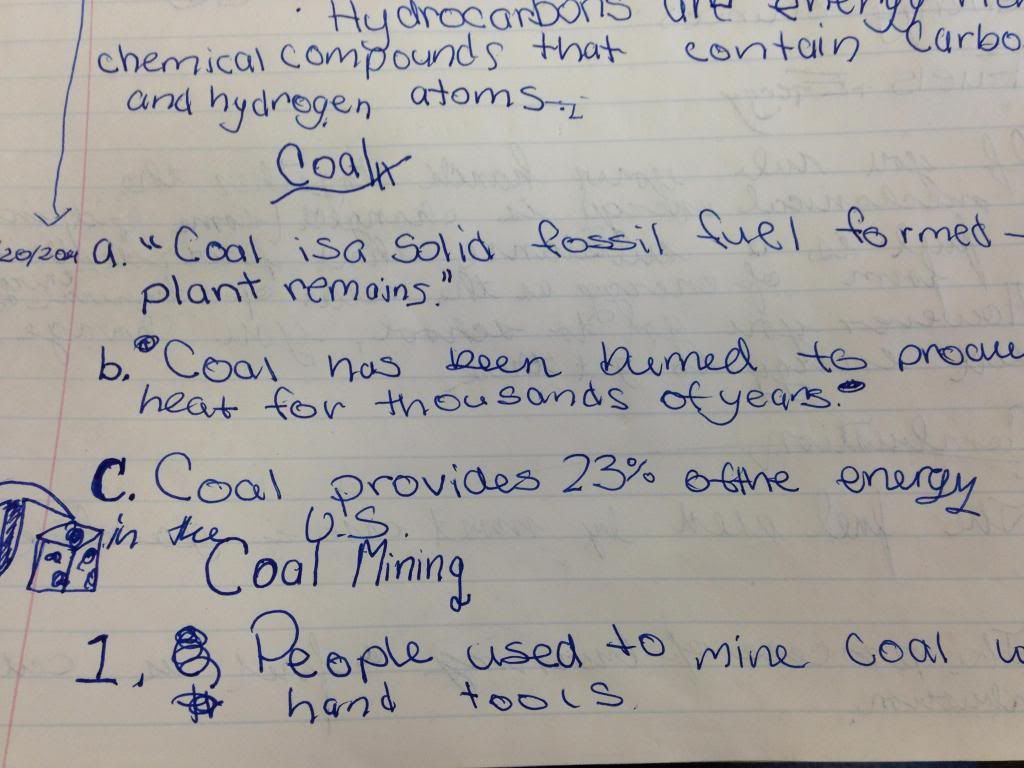 Hydrocarbons are energy
chemical compounds that contain Carbo
and hydrogen atoms.
Coal
a. "Coal is a solid fossil fuel formed -
plant remains."
b. "Coal has been burned to produ
heat for thousands of years."
C. Coal provides 23% of the energy
in the U.S.
Coal Mining
1. People used to mine coal
hand tools.